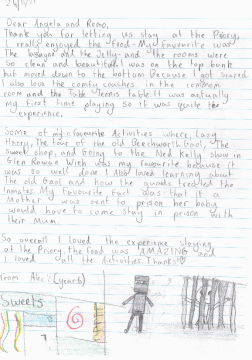 Dear Angela and Remo,
Thank you for letting us stay at the Priory,
I really enjoyed the food - My favourite was
The lasagna and the Jelly - and the rooms were
so clean and beautiful I was on the top bunk
but moved down to the bottom because I got scared
I also love the comfy couches in the common
room and the Table Tennis table It was actually
my first time playing so it was quite the
experience.
Some of my favourite Activities where, Lazy
Harry, The tour of the old Beechworth Gaol, The
Sweet shop, and Going to the Ned Kelly show in
Glen Rowan Wich was my favourite because it
was so well done. I also loved learning about
the old Gaol and how the guards treated the
inmates My favourite fact was that if a
Mother was sent to prison her baby
would have to come stay in prison with
their Mum.
So overall I loved the experience staying
at the Priory, the food was AMAZING and
I loved all the Activities Thanks!
From Alex (year 6)
Sweets